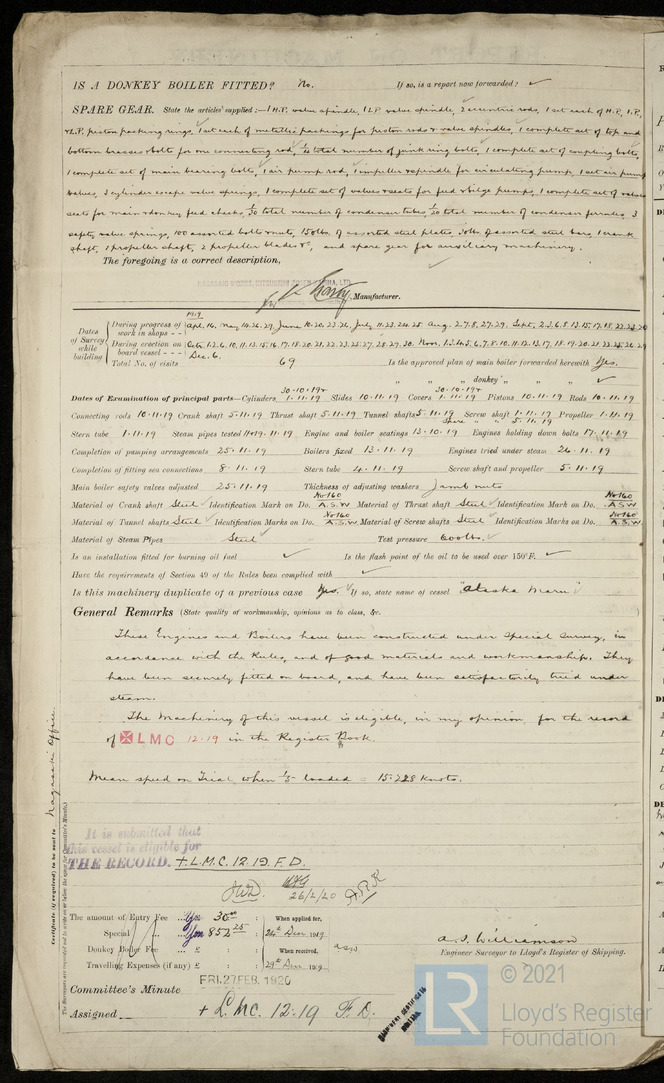 IS A DONKEY BOILER FITTED? No. If so, is a report now forwarded? ✓
SPARE GEAR. State the articles supplied:— 1 H.P. valve spindle, 1 L.P. valve spindle, 2 eccentric rods, 1 set each of H.P., I.P.,
& L.P. piston packing rings, 1 set each of metallic packings for piston rods & valve spindles, 1 complete set of top and
bottom brasses & bolts for one connecting rod, total number of junk ring bolts, 1 complete set of coupling bolts,
1 complete set of main bearing bolts, 1 air pump rod, 1 impeller & spindle for circulating pump, 1 set air pump
valves, 3 cylinder escape valve springs, 1 complete set of valves & seats for feed & bilge pumps, 1 complete set of valves
seats for main & donkey feed checks, 1/50 total number of condenser tubes, 1/20 total number of condenser ferrules, 3
safety valve springs, 100 assorted bolts & nuts, of assorted steel plates, of assorted steel bars, 1 crank
shaft, 1 propeller shaft, 2 propeller blades &c, and spare gear for auxiliary machinery.
The foregoing is a correct description,
Manufacturer.
Dates of Survey while building
1919
During progress of work in shops - - Apl. 16, May 14. 26. 29, June 10. 20. 23. 26, July 11. 23. 24. 25 Aug. 2. 7. 8. 27. 29. Sept. 2. 3. 6. 8. 13. 15. 17. 18. 22. 23.
During erection on board vessel - - - Octr. 1. 2. 6. 10. 11. 13. 15. 16. 17. 18. 20. 21. 22. 23. 25. 27. 28. 29. 30. Nov. 1. 3. 4. 5. 6. 7. 8. 10. 11. 12. 13. 17. 18. 19. 20. 21. 22. 25. 26. 29
Dec. 6.
Total No. of visits 69 Is the approved plan of main boiler forwarded herewith Yes.
" " " donkey " " " ✓
Dates of Examination of principal parts—Cylinders 30.10.19 & 1.11.19 Slides 10.11.19 Covers 30.10.19 & 1.11.19 Pistons 10.11.19 Rods 10.11.19
Connecting rods 10.11.19 Crank shaft 5.11.19 Thrust shaft 5.11.19 Tunnel shafts 5.11.19 Screw shaft 1.11.19 Propeller 1.11.19
Spare " " 5.11.19
Stern tube 1.11.19 Steam pipes tested 19.11.19 Engine and boiler seatings 13.10.19 Engines holding down bolts 17.11.19
Completion of pumping arrangements 25.11.19 Boilers fixed 13.11.19 Engines tried under steam 26.11.19
Completion of fitting sea connections 8.11.19 Stern tube 4.11.19 Screw shaft and propeller 5.11.19
Main boiler safety valves adjusted 25.11.19 Thickness of adjusting washers Jamb nuts
Material of Crank shaft Steel Identification Mark on Do. No 160 A.S.W Material of Thrust shaft Steel Identification Mark on Do. No 160 A.S.W
Material of Tunnel shafts Steel Identification Marks on Do. No 160 A.S.W Material of Screw shafts Steel Identification Marks on Do. No 160 A.S.W
Material of Steam Pipes Steel Test pressure 600 lbs.
Is an installation fitted for burning oil fuel ✓ Is the flash point of the oil to be used over 150°F. ✓
Have the requirements of Section 49 of the Rules been complied with ✓
Is this machinery duplicate of a previous case Yes. If so, state name of vessel "Alaska Maru"
General Remarks (State quality of workmanship, opinions as to class, &c.
These Engines and Boilers have been constructed under Special Survey, in
accordance with the Rules, and of good materials and workmanship. They
have been securely fitted on board, and have been satisfactorily tried under
steam.
The Machinery of this vessel is eligible, in my opinion, for the record
of ✠ LMC 12.19 in the Register Book.
Mean speed on Trial when 1/5 loaded = 15.228 knots.
It is submitted that
this vessel is eligible for
THE RECORD. + L.M.C. 12.19. F.D.
26/2/20
Certificate (if required) to be sent to Nagasaki Office.
(The Surveyors are requested not to write on or below the space for Committee's Minute.)
The amount of Entry Fee Yen 30.00 When applied for,
Special Yen 852.25 24th Dec 1919
Donkey Boiler Fee £ : : When received,
Travelling Expenses (if any) £ : : 29th Dec 1919
A. S. Williamson
Engineer Surveyor to Lloyd's Register of Shipping.
Committee's Minute FRI. 27 FEB. 1920
Assigned + L.M.C. 12.19 F.D.
LR © 2021
Lloyd's Register
Foundation